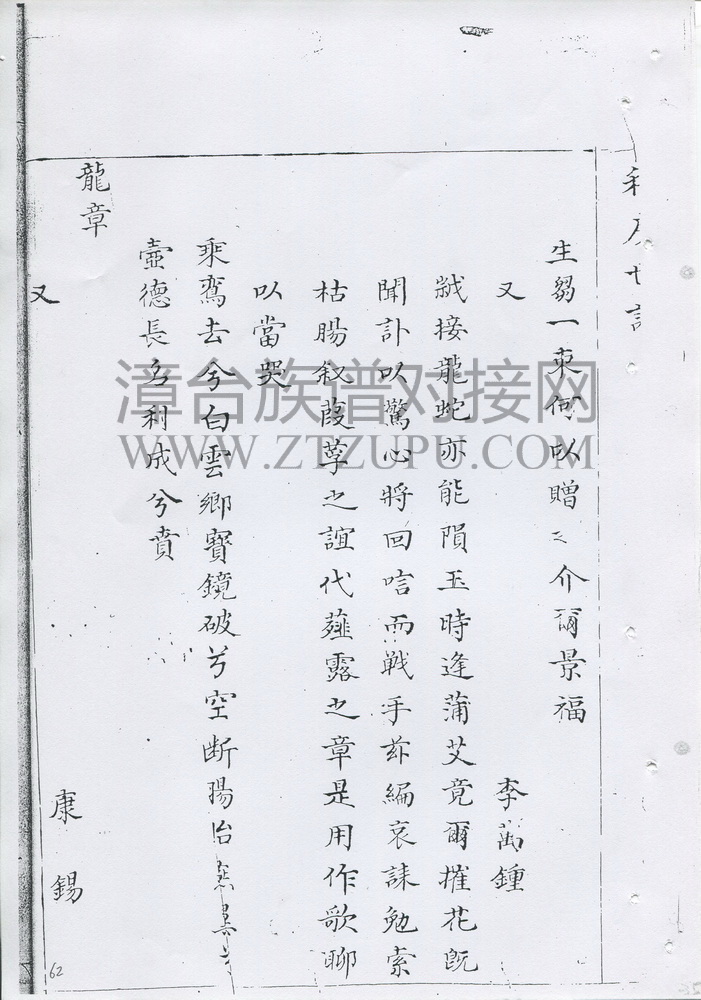 生芻一束何以贈〻介爾景福
又 李萬鍾
緘接龍蛇亦能隕玉時逢蒲艾竟爾摧花既
聞訃以驚心將回唁而戰手茲編哀誄勉索
枯腸敘葭莩之誼代薤露之章是用作歌聊
以當哭
乘鸞去兮白雲鄉寶鏡破兮空断腸治
壼德長名利成兮賁
龍章
又 康錫
62
漳台族谱对接网
WWW.ZTZUPU.COM